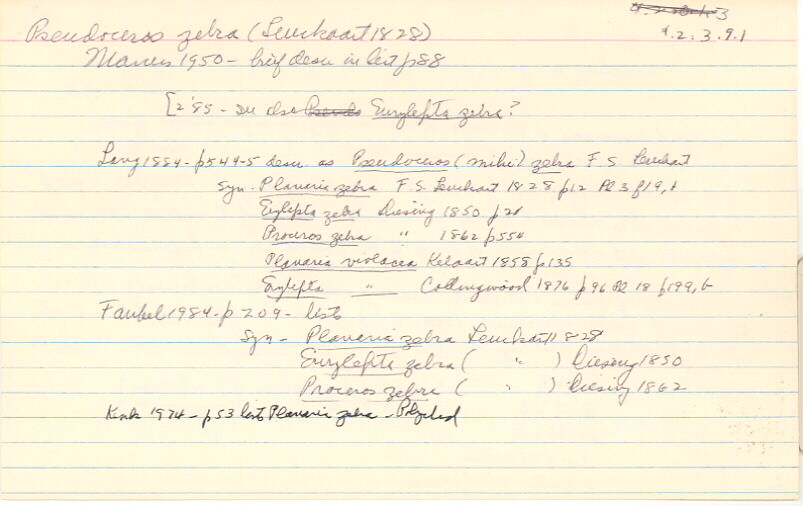 4.2.3.9.1
Pseudoceros zebra (Leuckart 1828)
Marcus 1950 - brief descr in list p88
[2'85 - See also Eurylepta zebra?
Lang 1884 - p544-5 descr as Pseudoceros (mihi) zebra F. S. Leuckart
Syn - Planaria zebra F. S. Leuckart 1828 p12 Pl 3 f19,
Eurylepta zebra Diesing 1850 p21
Proceros zebra " 1862 p554
Planaria violacea Kelaart 1858 p135
Eurylepta " Collingwood 1876 p96 Pl 18 f199, b
Faubel 1984 - p209 - lists
Syn - Planaria zebra Leuckart 1828
Eurylepta zebra ( " ) Diesing 1850
Proceros zebra ( " ) Diesing 1862
Kenk 1974 - p53 lists Planaria zebra - Polyclad